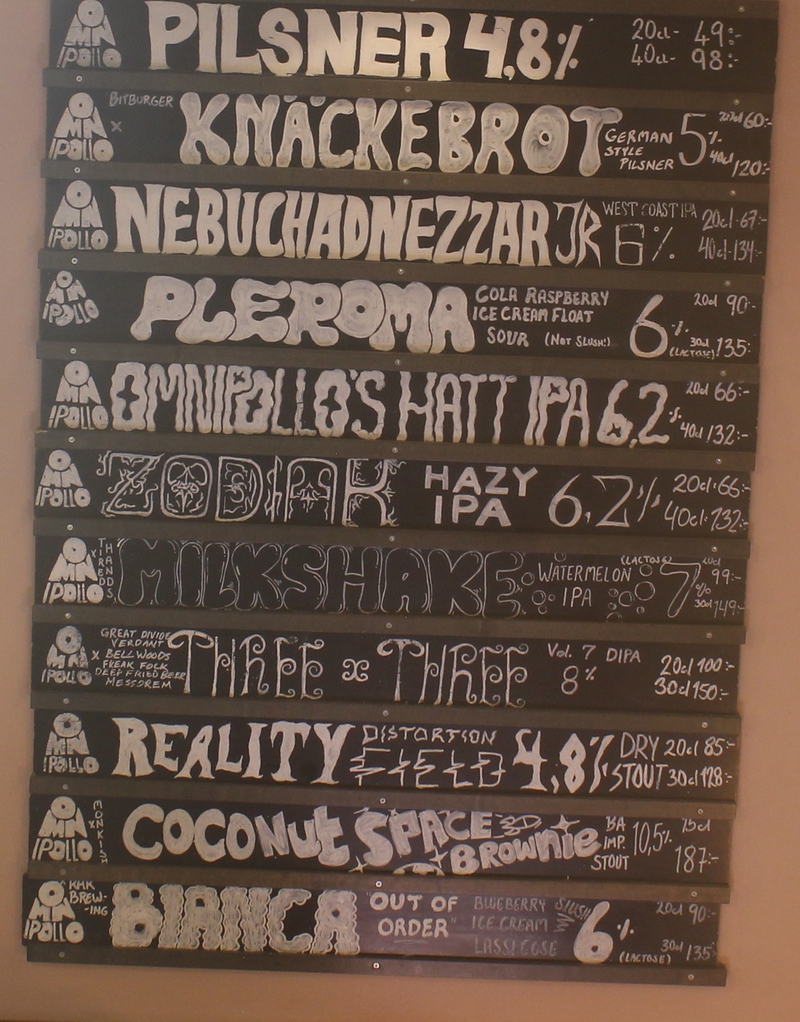 OMNIPOLLO PILSNER 4,8% 20cl- 49:-
40cl- 98:-
OMNIPOLLO X BITBURGER KNÄCKEBROT GERMAN STYLE PILSNER 5% 60:-
40cl/120:-
OMNIPOLLO NEBUCHADNEZZAR JR WEST COAST IPA 6% 20cl·67:-
40cl·134:-
OMNIPOLLO PLEROMA COLA RASPBERRY 6% 20cl 90:-
ICE CREAM FLOAT
SOUR (NOT SLUSH!) (LACTOSE) 30cl/135:-
OMNIPOLLO OMNIPOLLO'S HATT IPA 6,2% 20cl 66:-
40cl/132:-
OMNIPOLLO ZODIAK HAZY IPA 6,2% 20cl·66:-
40cl·132:-
OMNIPOLLO X THIRD HANDS MILKSHAKE WATERMELON IPA (LACTOSE) 7% 20cl 99:-
30cl/149:-
OMNIPOLLO X GREAT DIVIDE
VERDANT
BELLWOODS
FREAK FOLK
DEEP FRIED BEER
MESSOREM
THREE x THREE Vol. 7 DIPA 8% 20cl 100:-
30cl 150:-
OMNIPOLLO REALITY DISTORTION FIELD 4,8% DRY STOUT 20cl 85:-
30cl 128:-
OMNIPOLLO X MONKISH COCONUT SPACE BROWNIE BA IMP. STOUT 10,5% 15cl
187:-
OMNIPOLLO KHK BREW-
-ING
BIANCA "OUT OF ORDER" BLUEBERRY SLUSH 6% 20cl 90:-
ICE CREAM
LASSI GOSE (LACTOSE) 30cl/135:-